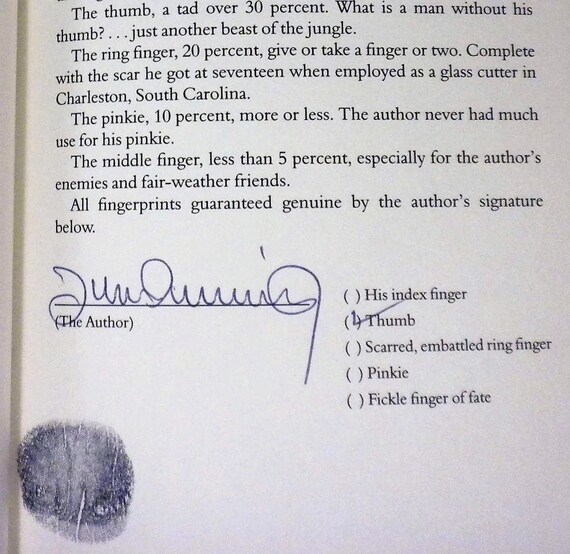 The thumb, a tad over 30 percent. What is a man without his
thumb? . . . just another beast of the jungle.
The ring finger, 20 percent, give or take a finger or two. Complete
with the scar he got at seventeen when employed as a glass cutter in
Charleston, South Carolina.
The pinkie, 10 percent, more or less. The author never had much
use for his pinkie.
The middle finger, less than 5 percent, especially for the author's
enemies and fair-weather friends.
All fingerprints guaranteed genuine by the author's signature
below.
(The Author)
( ) His index finger
( ) Thumb
( ) Scarred, embattled ring finger
( ) Pinkie
( ) Fickle finger of fate